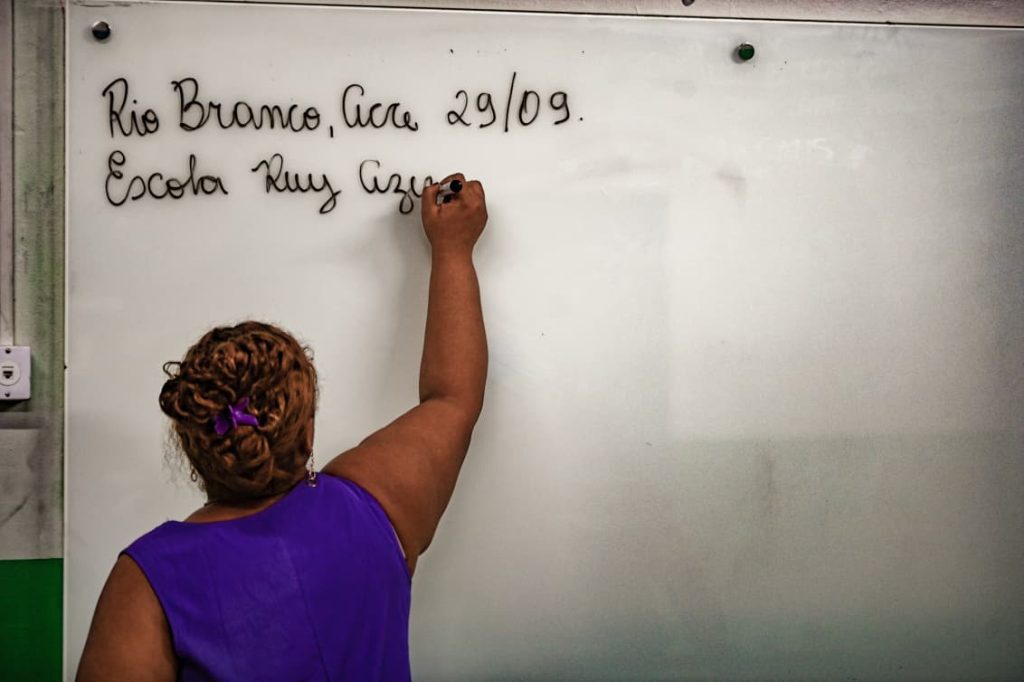 Rio Branco, Acre 29/09.
Escola Ruy Aze